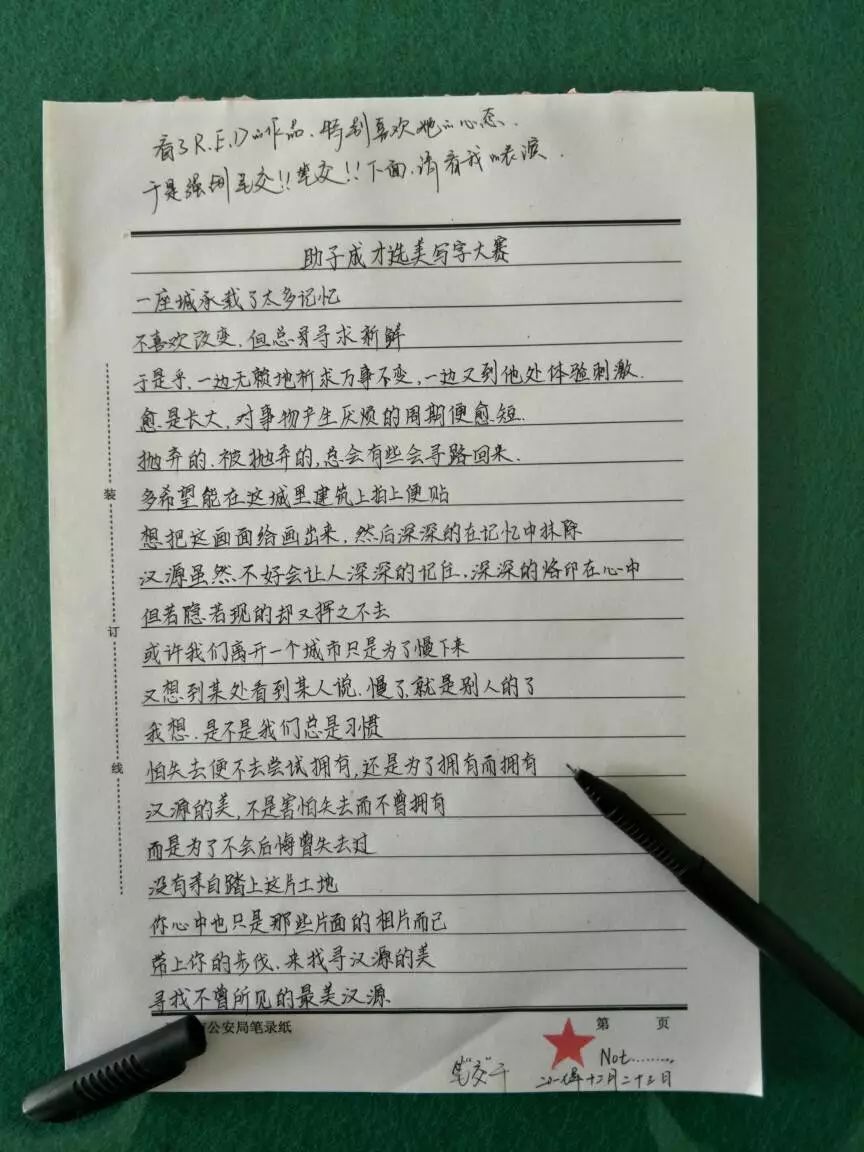 看了R.E.D的作品,特别喜欢她的心态.
于是强烈笔交!!笔交!!下面,请看我的表演.
助子成才选美写字大赛
一座城承载了太多记忆
不喜欢改变,但总寻求新鲜
于是乎、一边无赖地祈求万事不变,一边又到他处体验刺激.
愈是长大,对事物产生厌烦的周期便愈短.
抛弃的、被抛弃的,总会有些会寻路回来.
多希望能在这城里建筑上拍上便贴
想把这画面给画出来,然后深深的在记忆中抹除
汉源虽然不好会让人深深的记住,深深的烙印在心中
但若隐若现的却又挥之不去
或许我们离开一个城市只是为了慢下来
又想到某处看到某人说、慢了就是别人的了
我想、是不是我们总是习惯
怕失去便不去尝试拥有,还是为了拥有而拥有
汉源的美,不是害怕失去而不曾拥有
而是为了不会后悔曾失去过
没有亲自踏上这片土地
你心中也只是那些片面的相片而已
带上你的步伐、来找寻汉源的美
寻找不曾所见的最美汉源
装
订
线
公安局笔录纸
第 页
Not.........
笔"交"于
十二月二十三日